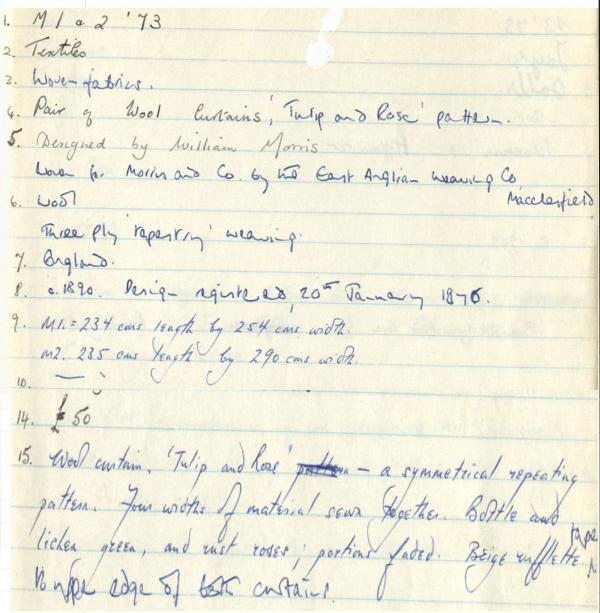 1. M1 & 2 '73
2. Textiles
3. Woven fabrics.
4. Pair of Wool Curtains, 'Tulip and Rose' pattern.
5. Designed by William Morris
Woven for Morris and Co. by the East Anglian Weaving Co
Macclesfield
6. Wool
Three ply 'tapestry' weaving.
7. England.
8. c.1890. Design registered, 20th January 1876.
9. M1. = 234 cms length by 254 cms width.
M2. 235 cms length by 290 cms width.
10. —
14. £50
15. Wool curtain, 'Tulip and Rose' pattern — a symmetrical repeating
pattern. Four widths of material sewn together. Bottle and
lichen green, and rust roses; portions faded. Beige rufflette tape
to upper edge of both curtains.